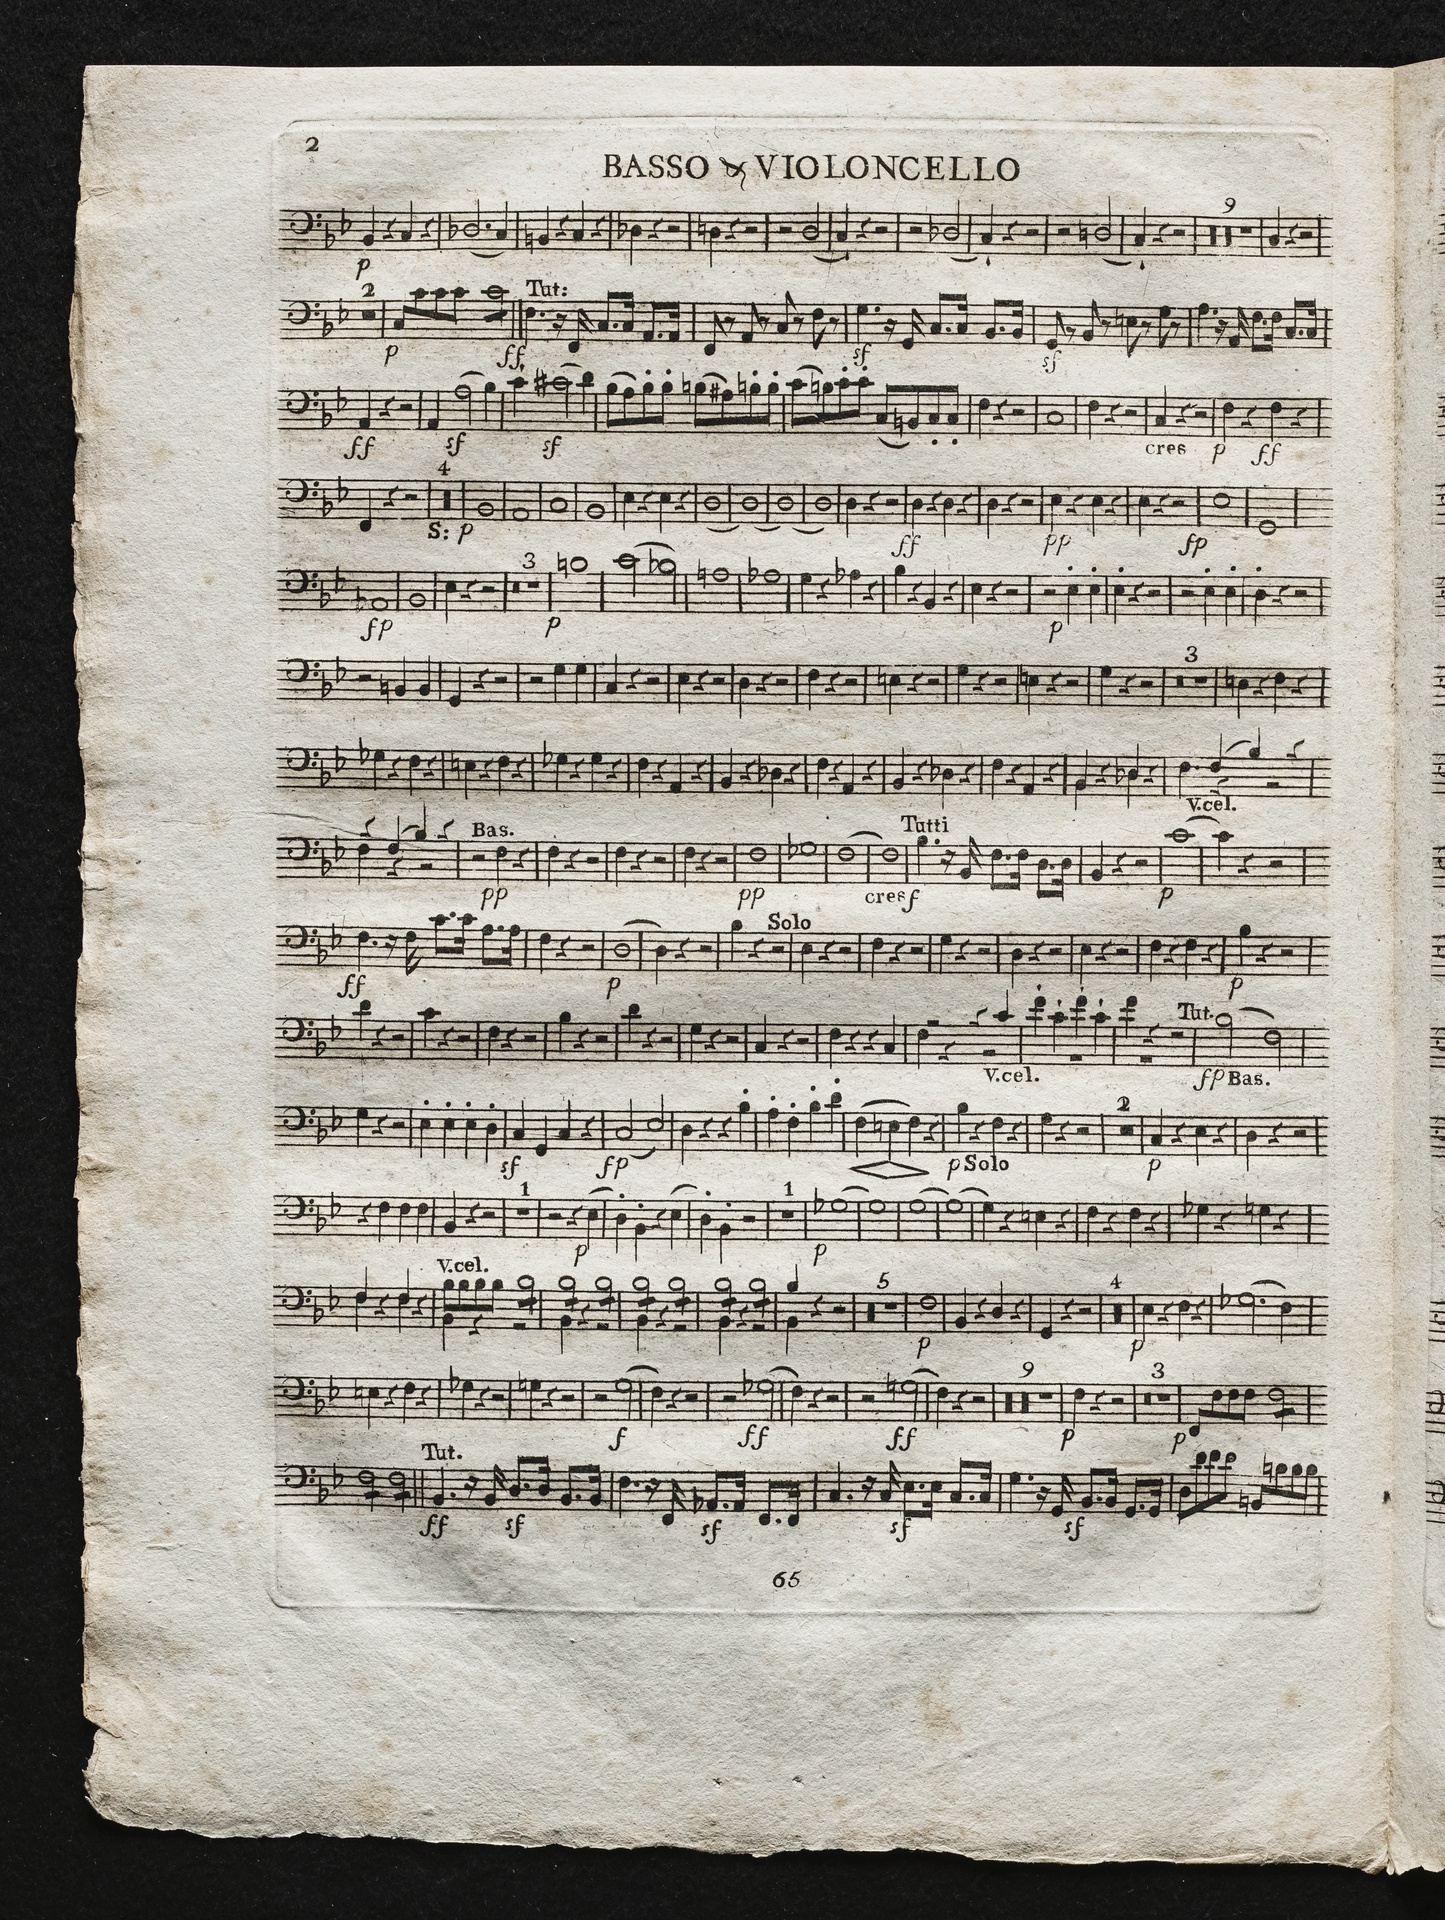 2
BASSO & VIOLONCELLO
9
p
2 Tut:
p ff sf sf
ff sf sf cres p ff
4
S: p ff pp fp
3
fp p p
3
V.cel.
Bas. Tutti
pp pp cres f p
Solo
ff p p
Tut.
V.cel. fp Bas.
2
sf fp p Solo p
1 1
p p
V.cel. 5 4
p p
9 3
f ff ff p p
Tut.
ff sf sf sf sf
65